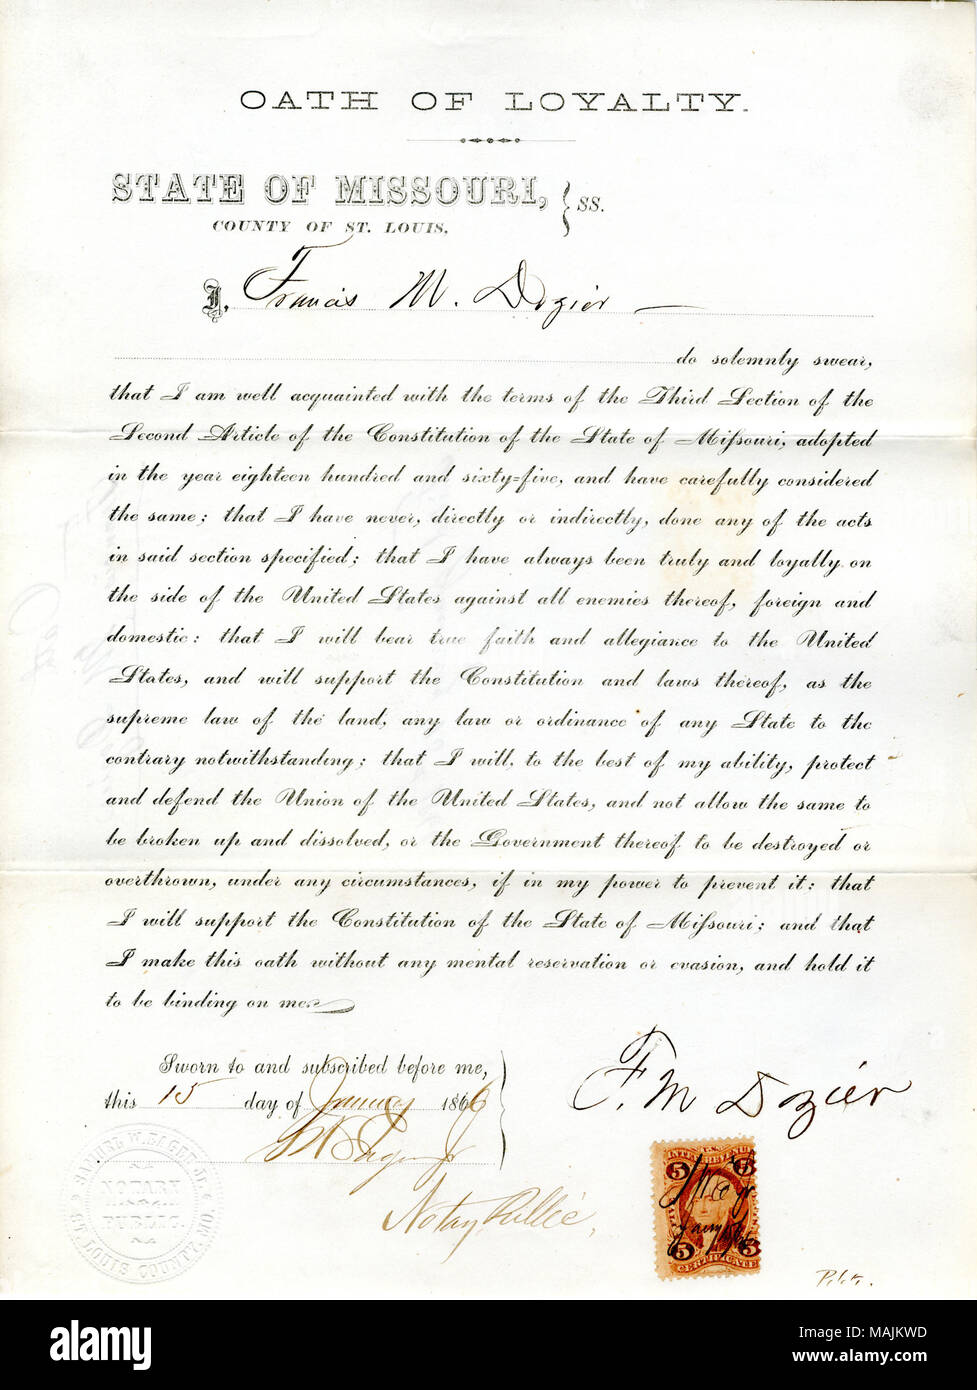 OATH OF LOYALTY.
STATE OF MISSOURI, } SS.
COUNTY OF ST. LOUIS.
I, Francis M. Dozier —
do solemnly swear,
that I am well acquainted with the terms of the Third Section of the
Second Article of the Constitution of the State of Missouri, adopted
in the year eighteen hundred and sixty-five, and have carefully considered
the same; that I have never, directly or indirectly, done any of the acts
in said section specified; that I have always been truly and loyally on
the side of the United States against all enemies thereof, foreign and
domestic: that I will bear true faith and allegiance to the United
States, and will support the Constitution and laws thereof, as the
supreme law of the land, any law or ordinance of any State to the
contrary notwithstanding; that I will, to the best of my ability, protect
and defend the Union of the United States, and not allow the same to
be broken up and dissolved, or the Government thereof to be destroyed or
overthrown, under any circumstances, if in my power to prevent it; that
I will support the Constitution of the State of Missouri; and that
I make this oath without any mental reservation or evasion, and hold it
to be binding on me.
Sworn to and subscribed before me,
this 15 day of January 1866
F. M Dozier
Notary Public,
NOTARY
PUBLIC.
ST. LOUIS COUNTY, MO.
5 U.S. 5
INTER. REV.
5 5
CERTIFICATE
alamy
Image ID: MAJKWD
www.alamy.com